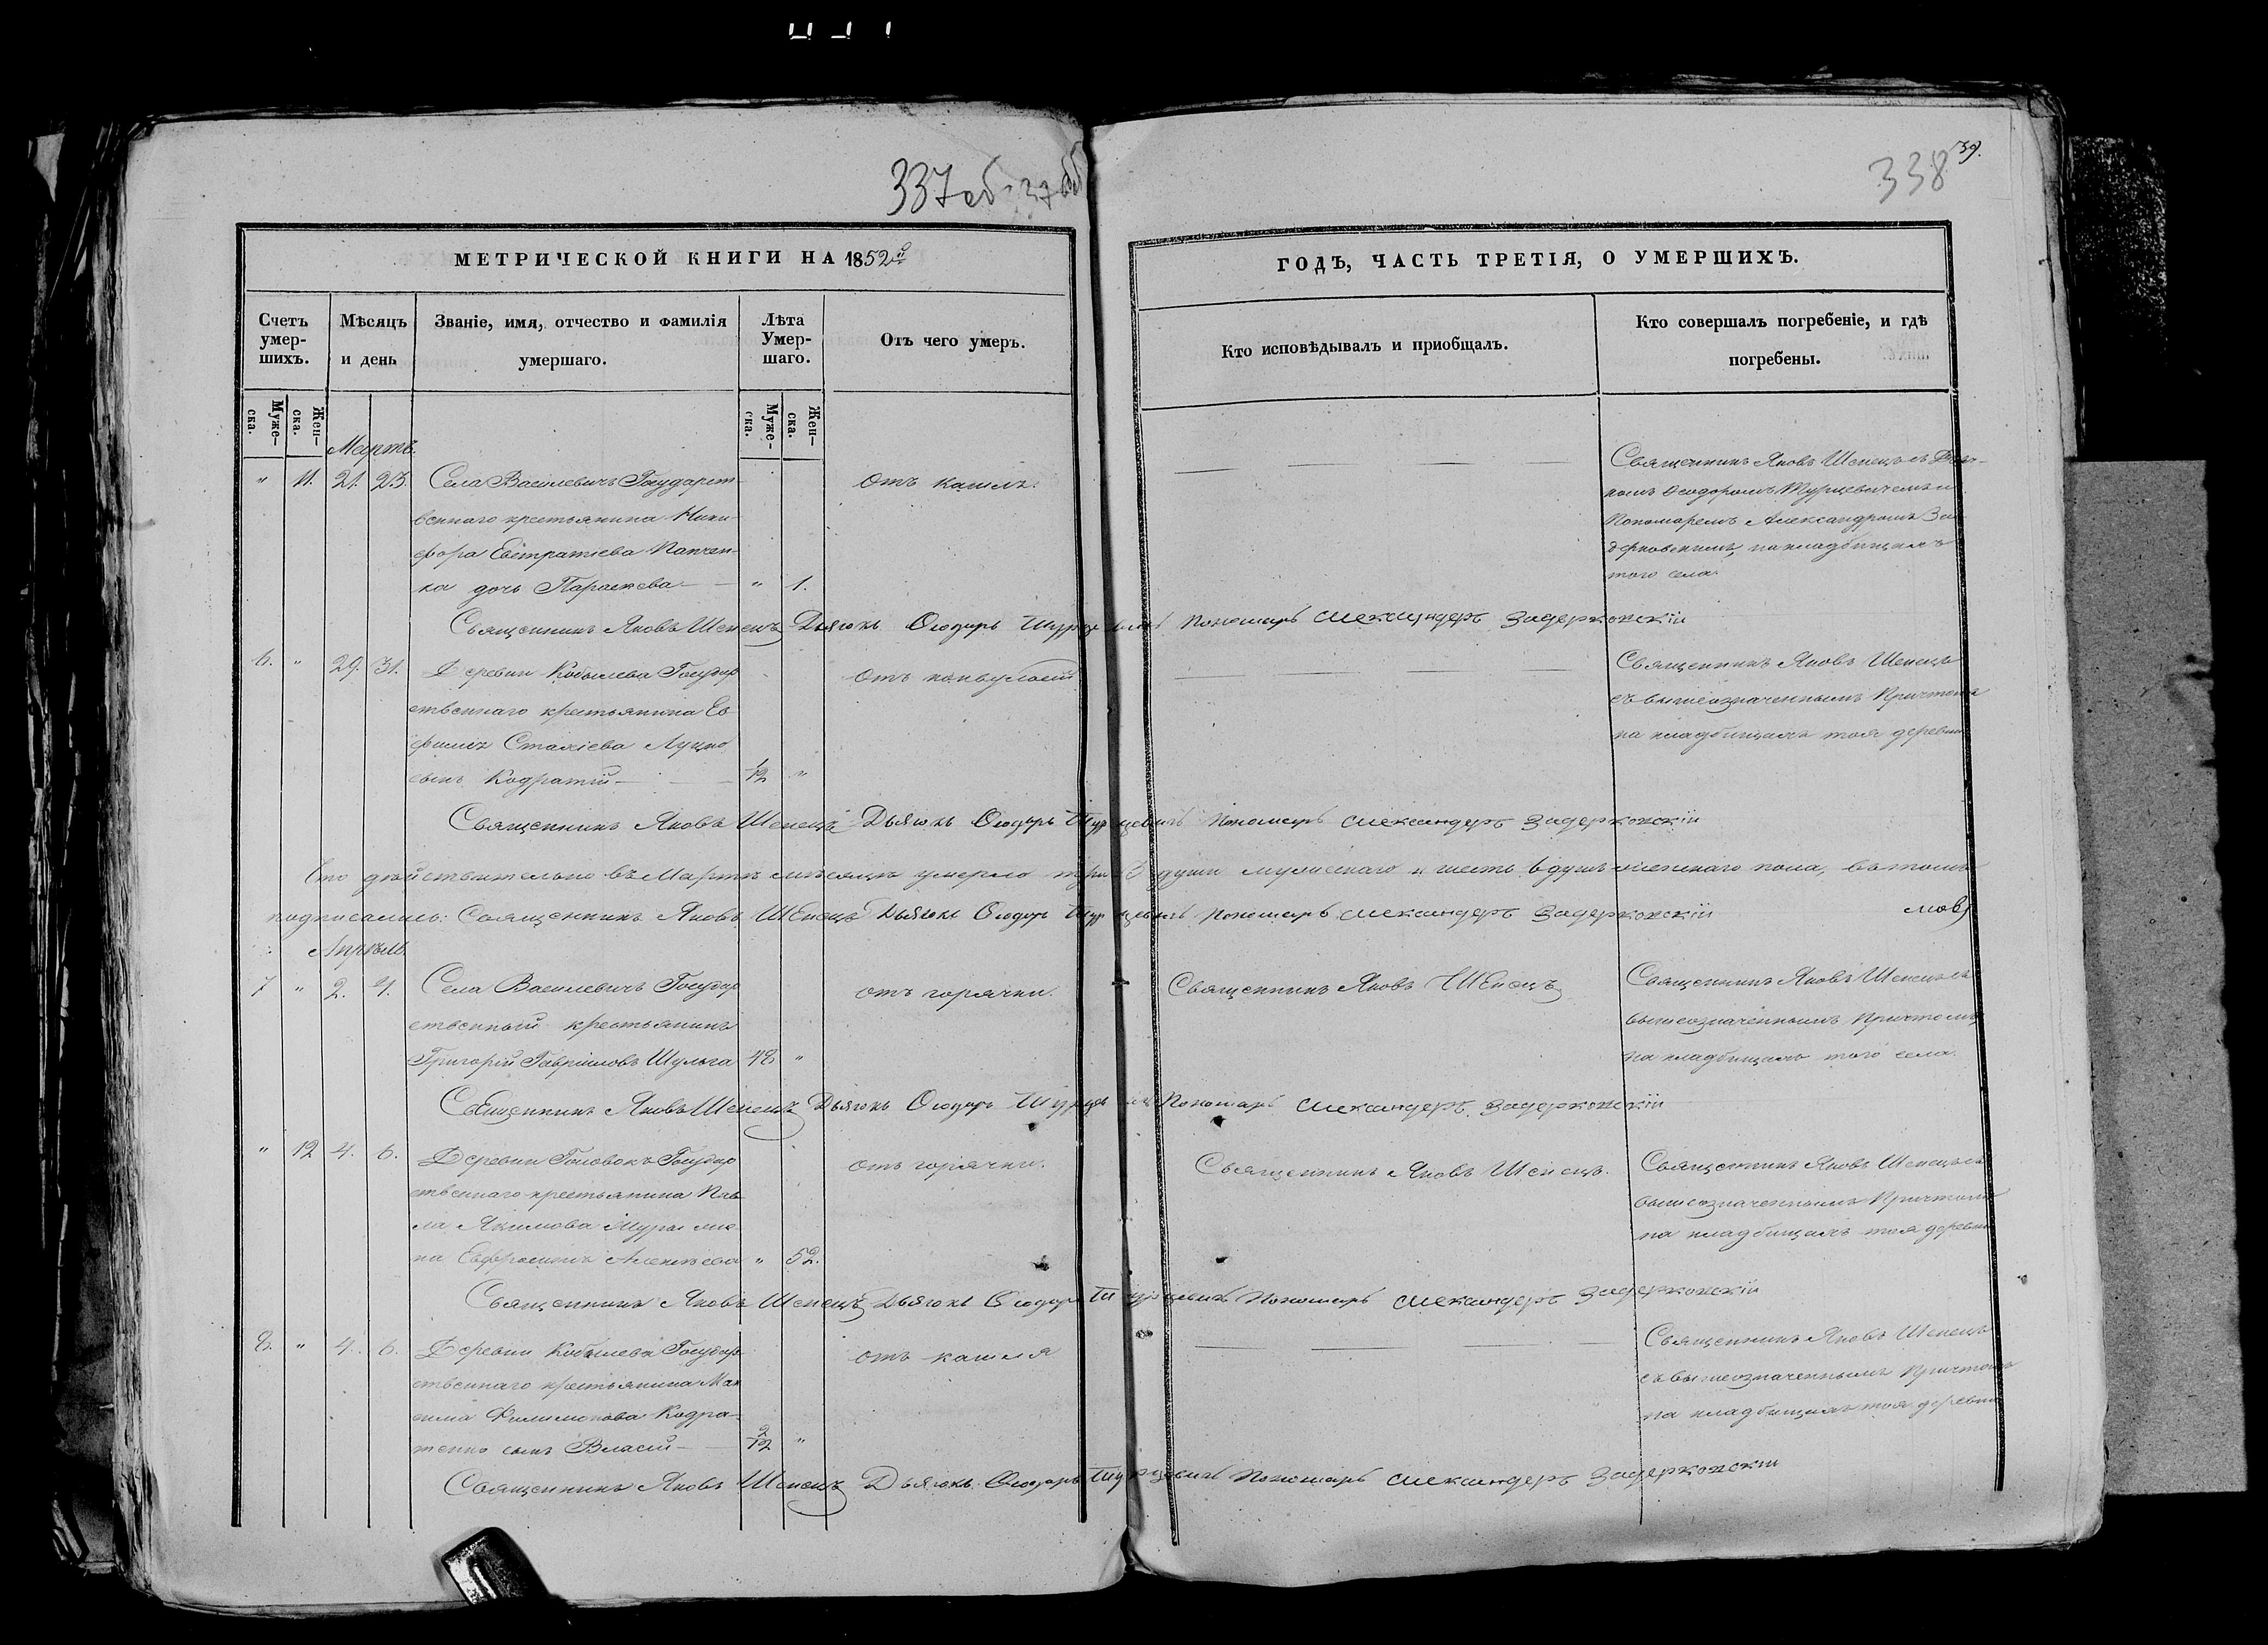 337 об 37 об
338 39.
МЕТРИЧЕСКОЙ КНИГИ НА 1852й
ГОДЪ, ЧАСТЬ ТРЕТІЯ, О УМЕРШИХЪ.
Счетъ умер-шихъ.
Мѣсяцъ и день
Званіе, имя, отчество и фамилія умершаго.
Лѣта Умер-шаго.
Отъ чего умеръ.
Кто исповѣдывалъ и приобщалъ.
Кто совершалъ погребеніе, и гдѣ погребены.
Муже-ска.
Жен-ска.
Муже-ска.
Жен-ска.
Мартъ.
" 11. 21. 23. Села Василевичъ Государст-
веннаго крестьянина Ники-
фора Евстратіева Панчен-
ка дочь Параскева — " 1.
Отъ кашля.
Священникъ Яковъ Шепецъ съ Дьяч-
комъ Ѳеодоромъ Турцевичемъ и
Пономаремъ Александромъ За-
дерковскимъ, на кладбищахъ
того села.
Священникъ Яковъ Шепецъ Дьячокъ Ѳеодоръ Турцевичъ Пономарь Александеръ Задерковскій
6. " 29. 31. Деревни Кобылева Государ
ственнаго крестьянина Ев
фима Стахіева Луцко
сынъ Кодратій — 1/12 "
Отъ конвульсій
Священникъ Яковъ Шепецъ
съ вышеозначеннымъ Причтомъ
на кладбищахъ тоя деревни
Священникъ Яковъ Шепецъ Дьячокъ Ѳеодоръ Турцевичъ Пономарь Александеръ Задерковскій
Что дѣйствительно въ Мартѣ мѣсяцѣ умерло три 3 души мужескаго и шесть 6 душъ женскаго пола, въ томъ
подписались: Священникъ Яковъ Шепецъ Дьячокъ Ѳеодоръ Турцевичъ Пономарь Александеръ Задерковскій
Апрѣль.
7 " 2. 4. Села Василевичъ Государ
ственный крестьянинъ
Григорій Гавріиловъ Шульга 48 "
отъ горячки.
Священникъ Яковъ Шепецъ
Священникъ Яковъ Шепецъ съ
вышеозначеннымъ Причтомъ,
на кладбищахъ того села.
Священникъ Яковъ Шепецъ Дьячокъ Ѳеодоръ Турцевичъ Пономарь Александеръ Задерковскій
" 12 4. 6. Деревни Головокъ Государ
ственнаго крестьянина Пав
ла Якимова Мура же
на Евфросинія Алексѣева " 52.
отъ горячки.
Священникъ Яковъ Шепецъ.
Священникъ Яковъ Шепецъ съ
вышеозначеннымъ Причтомъ
на кладбищахъ тоя деревни
Священникъ Яковъ Шепецъ Дьячокъ Ѳеодоръ Турцевичъ Пономарь Александеръ Задерковскій
8. " 4. 6. Деревни Кобылева Государ
ственнаго крестьянина Мак
сима Филимонова Кодра-
тенко сынъ Власій — 2/12 "
отъ кашля
Священникъ Яковъ Шепецъ
съ вышеозначеннымъ Причтомъ
на кладбищахъ тоя деревни
Священникъ Яковъ Шепецъ Дьячокъ Ѳеодоръ Турцевичъ Пономарь Александеръ Задерковскій